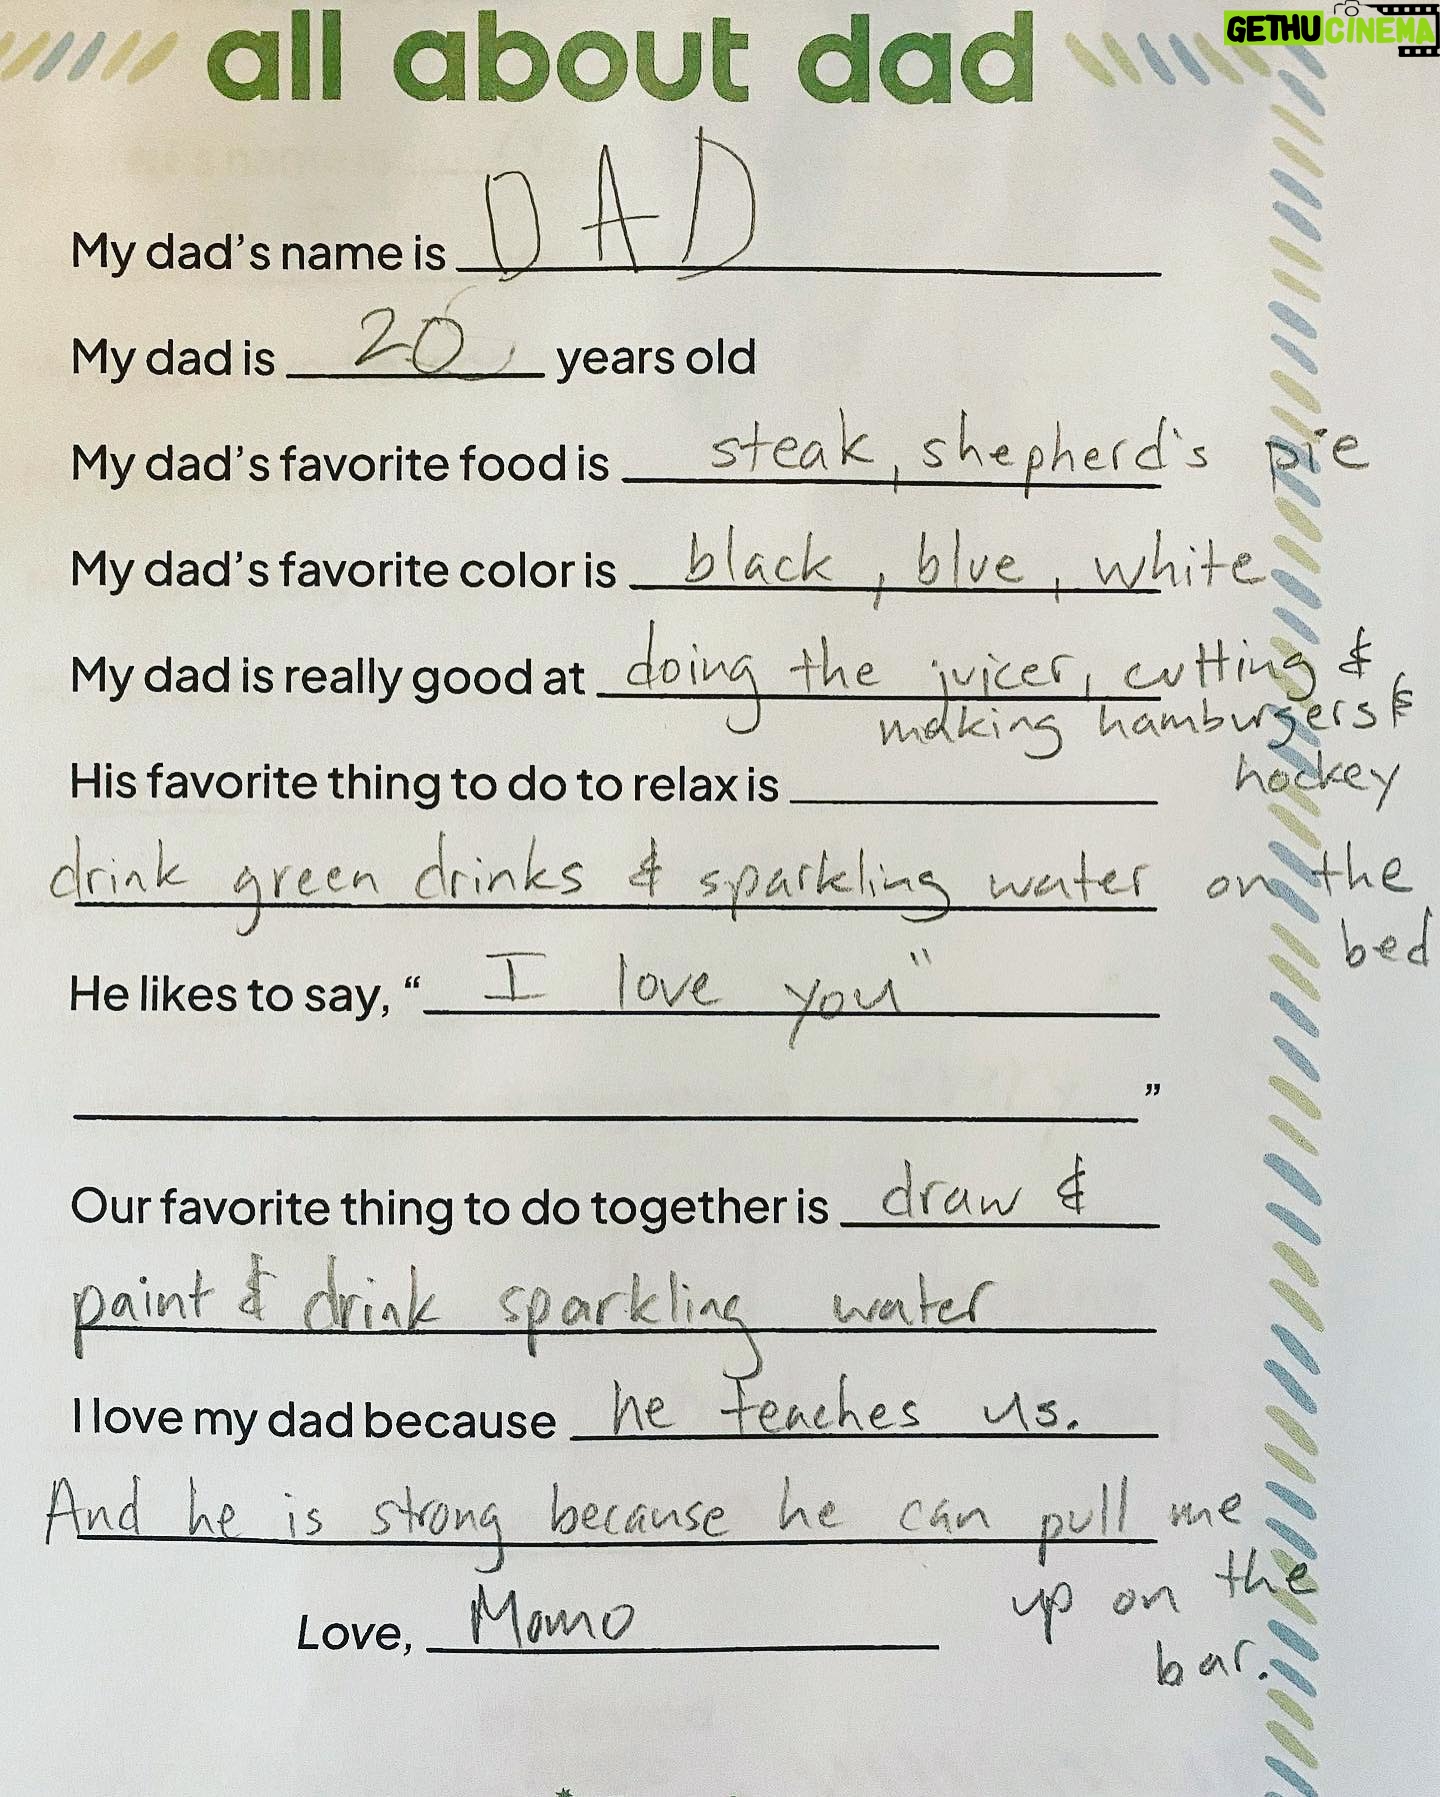 GETHUCINEMA
all about dad
My dad's name is DAD
My dad is 20 years old
My dad's favorite food is steak, shepherd's pie
My dad's favorite color is black, blue, white
My dad is really good at doing the juicer, cutting &
making hamburgers &
hockey
His favorite thing to do to relax is
drink green drinks & sparkling water on the
bed
He likes to say, "I love you"
"
Our favorite thing to do together is draw &
paint & drink sparkling water
I love my dad because he teaches us.
And he is strong because he can pull me
up on the
bar.
Love, Momo